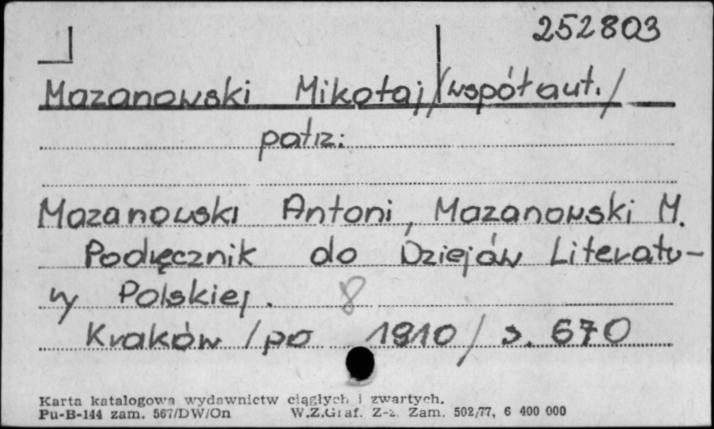 252803
Mazanowski Mikołaj /współaut./
patrz:
Mazanowski Antoni, Mazanowski M.
Podręcznik do Dziejów Literatu-
ry Polskiej. 8
Kraków /po 1910/ s. 670
Karta katalogowa wydawnictw ciągłych i zwartych.
Pu-B-144 zam. 567/DW/On W.Z.Graf. Z-2 Zam. 502/77, 6 400 000